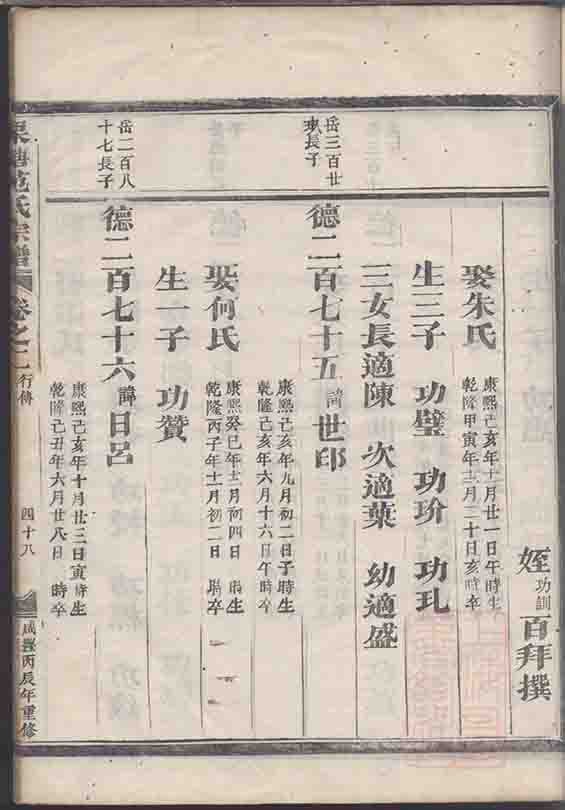 姪功訓百拜撰
娶朱氏
康熙己亥年十二月廿一日午時生
乾隆甲寅年十二月二十日亥時卒
生三子 功璧 功玠 功玌
三女長適陳 次適葉 幼適盛
岳三百廿
長子
德二百七十五諱世印
康熙己亥年九月初二日子時生
乾隆己亥年六月十六日午時卒
娶何氏
康熙癸巳年十二月初四日 生
乾隆丙子年十二月初二日 卒
生一子 功贊
岳二百八
十七長子
德二百七十六諱日呂
康熙己亥年十月廿三日寅時生
乾隆己丑年六月廿八日 時卒
范氏宗譜
卷之二
行傳
四十八
咸豐丙辰年重修